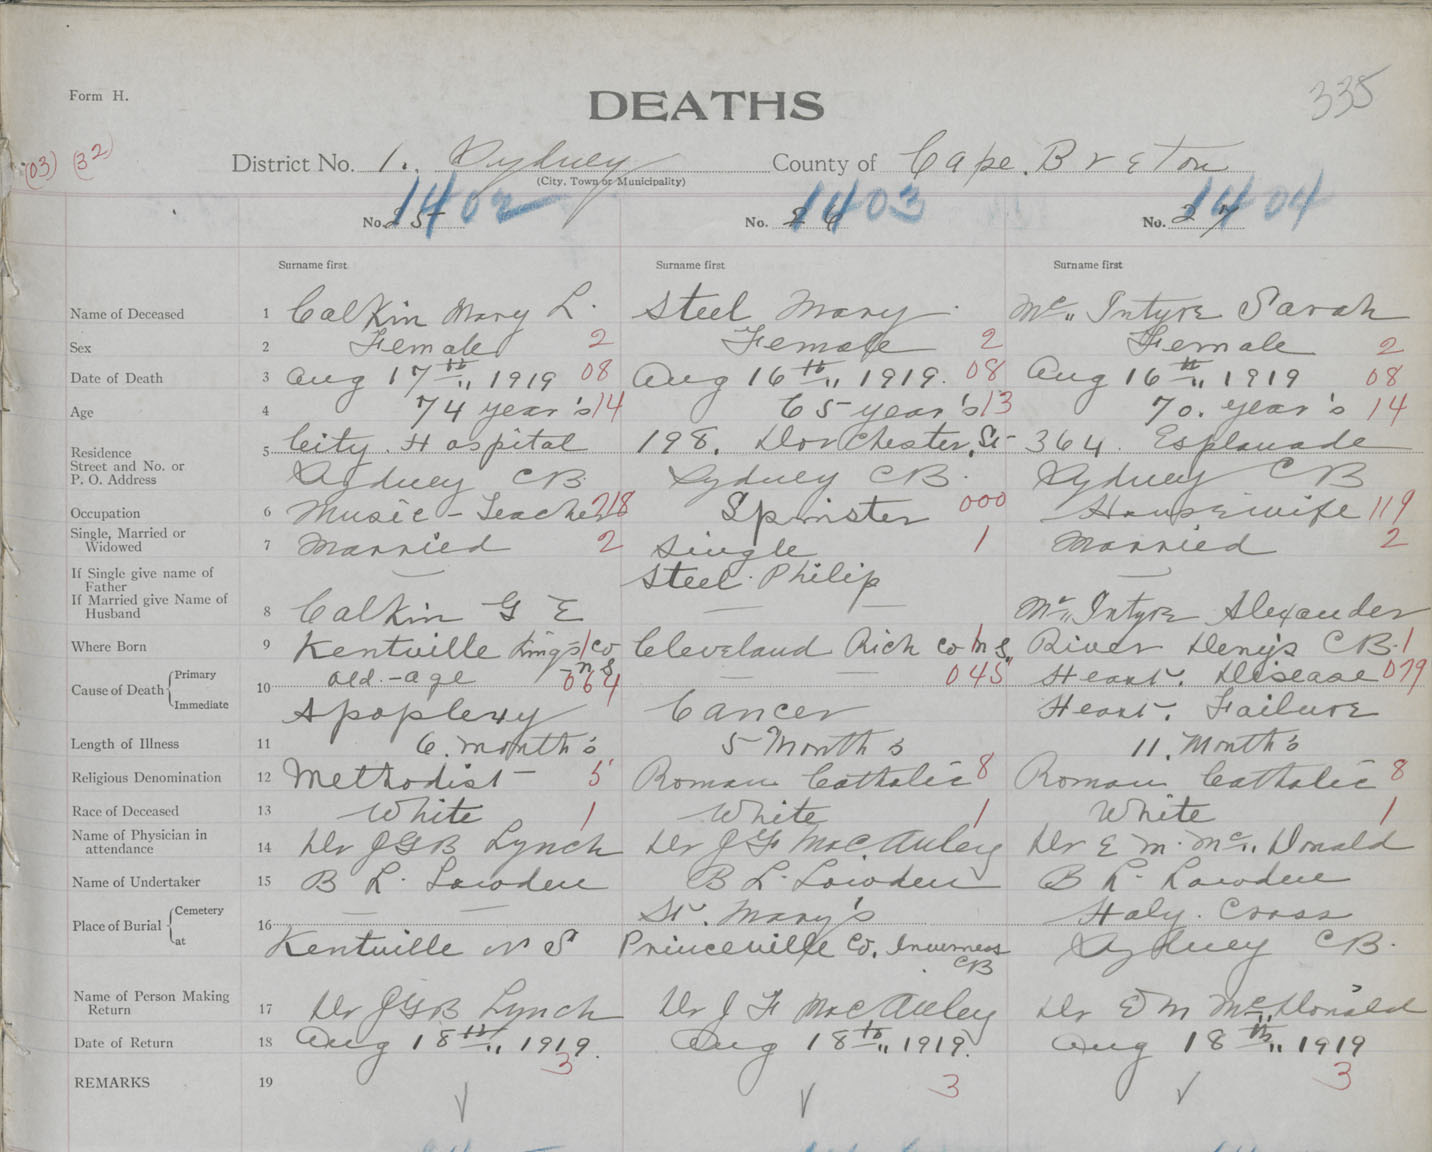 Form H.
DEATHS
335
(03) (32)
District No. 1., Sydney County of Cape Breton
(City, Town or Municipality)
1402 1403 1404
No. 25 No. 26 No. 27
Surname first Surname first Surname first
Name of Deceased 1 Calkin Mary L. Steel Mary. Mc,, Intyre Sarah
Sex 2 Female 2 Female 2 Female 2
Date of Death 3 Aug 17th,, 1919 08 Aug 16th,, 1919. 08 Aug 16th,, 1919 08
Age 4 74 year's 14 65 year's 13 70. year's 14
Residence 5 City. Hospital 198. Dorchester, St 364. Esplanade
Street and No. or
P. O. Address Sydney CB. Sydney CB. Sydney CB
Occupation 6 Music-Teacher 218 Spinster 000 Housewife 119
Single, Married or
Widowed 7 Married 2 Single 1 Married 2
If Single give name of
Father — Steel. Philip —
If Married give Name of
Husband 8 Calkin G E — — Mc,, Intyre Alexander
Where Born 9 Kentville Kings Co 1 Cleveland Rich Co N S, 1 River Deny's CB. 1
N S
Cause of Death { Primary 10 old.-age 064 — — 045 Heart. Disease 079
Immediate Apoplexy Cancer Heart. Failure
Length of Illness 11 6. month's 5 Month's 11. Month's
Religious Denomination 12 Methodist 5 Roman Catholic 8 Roman Catholic 8
Race of Deceased 13 White 1 White 1 White 1
Name of Physician in
attendance 14 Dr J G B Lynch Dr J F MacAuley Dr E M. Mc,, Donald
Name of Undertaker 15 B L. Lowden B L. Lowden B L. Lowden
Place of Burial { Cemetery 16 — — St. Mary's Holy. Cross
at Kentville N S Princeville Co. Inverness Sydney CB.
CB
Name of Person Making
Return 17 Dr J G B Lynch Dr J F MacAuley Dr E M Mc,, Donald
Date of Return 18 Aug 18th,, 1919. Aug 18th,, 1919. Aug 18th,, 1919
3 3 3
REMARKS 19